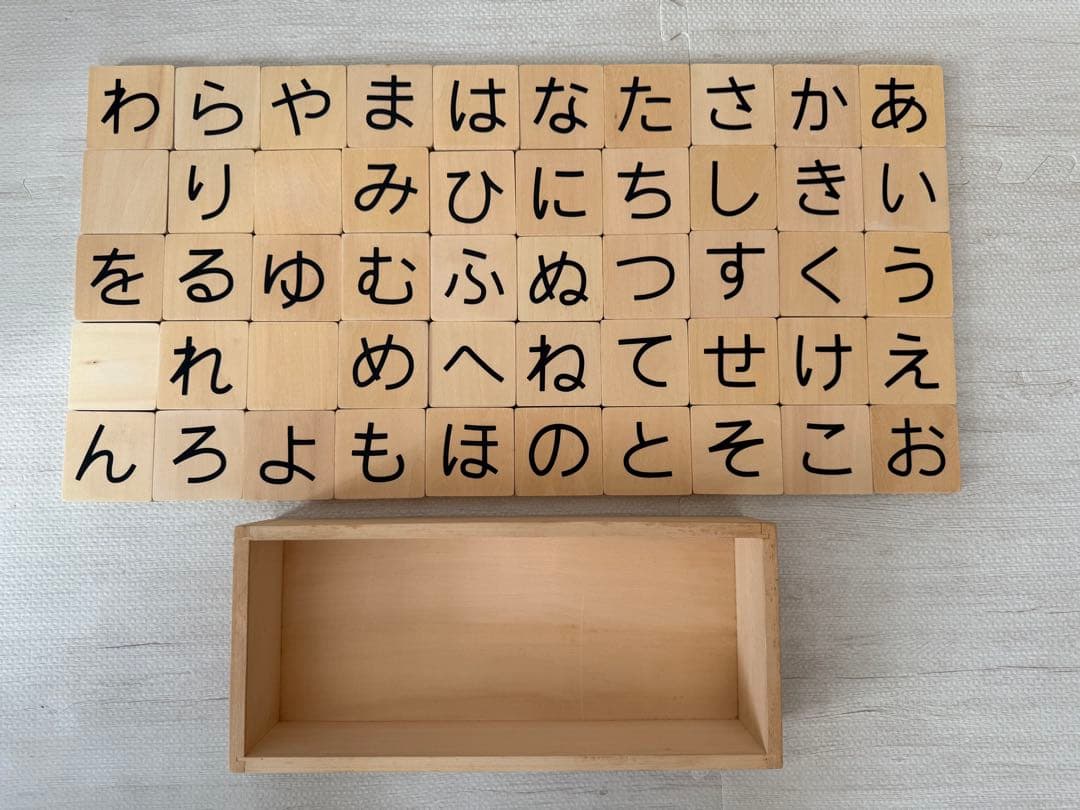 わらやまはなたさかあ
りみひにちしきい
をるゆむふぬつすくう
れめへねてせけえ
んろよもほのとそこお